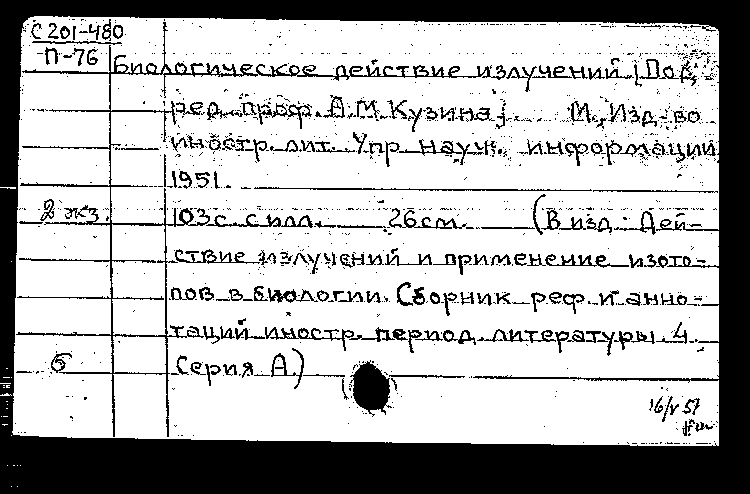 С 201-480
П-76
Биологическое действие излучений [Под
ред. проф. А.М. Кузина]. М., Изд-во
иностр. лит. Упр. науч. информации
1951.
2 экз. 103 с. с илл. 26 см. (В изд.: Дей-
ствие излучений и применение изото-
пов в биологии. Сборник реф. и анно-
таций иностр. период. литературы. 4.
б Серия А.)
16/V 51